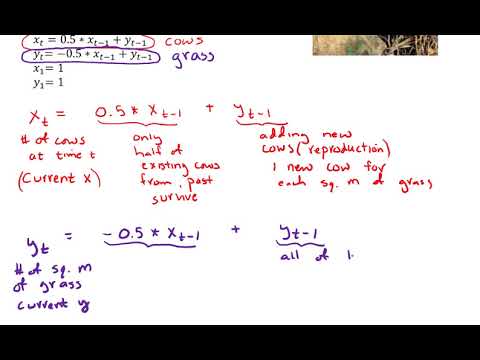 x_t = 0.5 * x_{t-1} + y_{t-1} cows
y_t = −0.5 * x_{t-1} + y_{t-1} grass
x_1 = 1
y_1 = 1
x_t = 0.5 * x_{t-1} + y_{t-1}
# of cows
at time t
(current x)
only
half of
existing cows
from past
survive
adding new
cows (reproduction)
1 new cow for
each sq. m of grass
y_t = -0.5 * x_{t-1} + y_{t-1}
# of sq. m
of grass
current y
all of